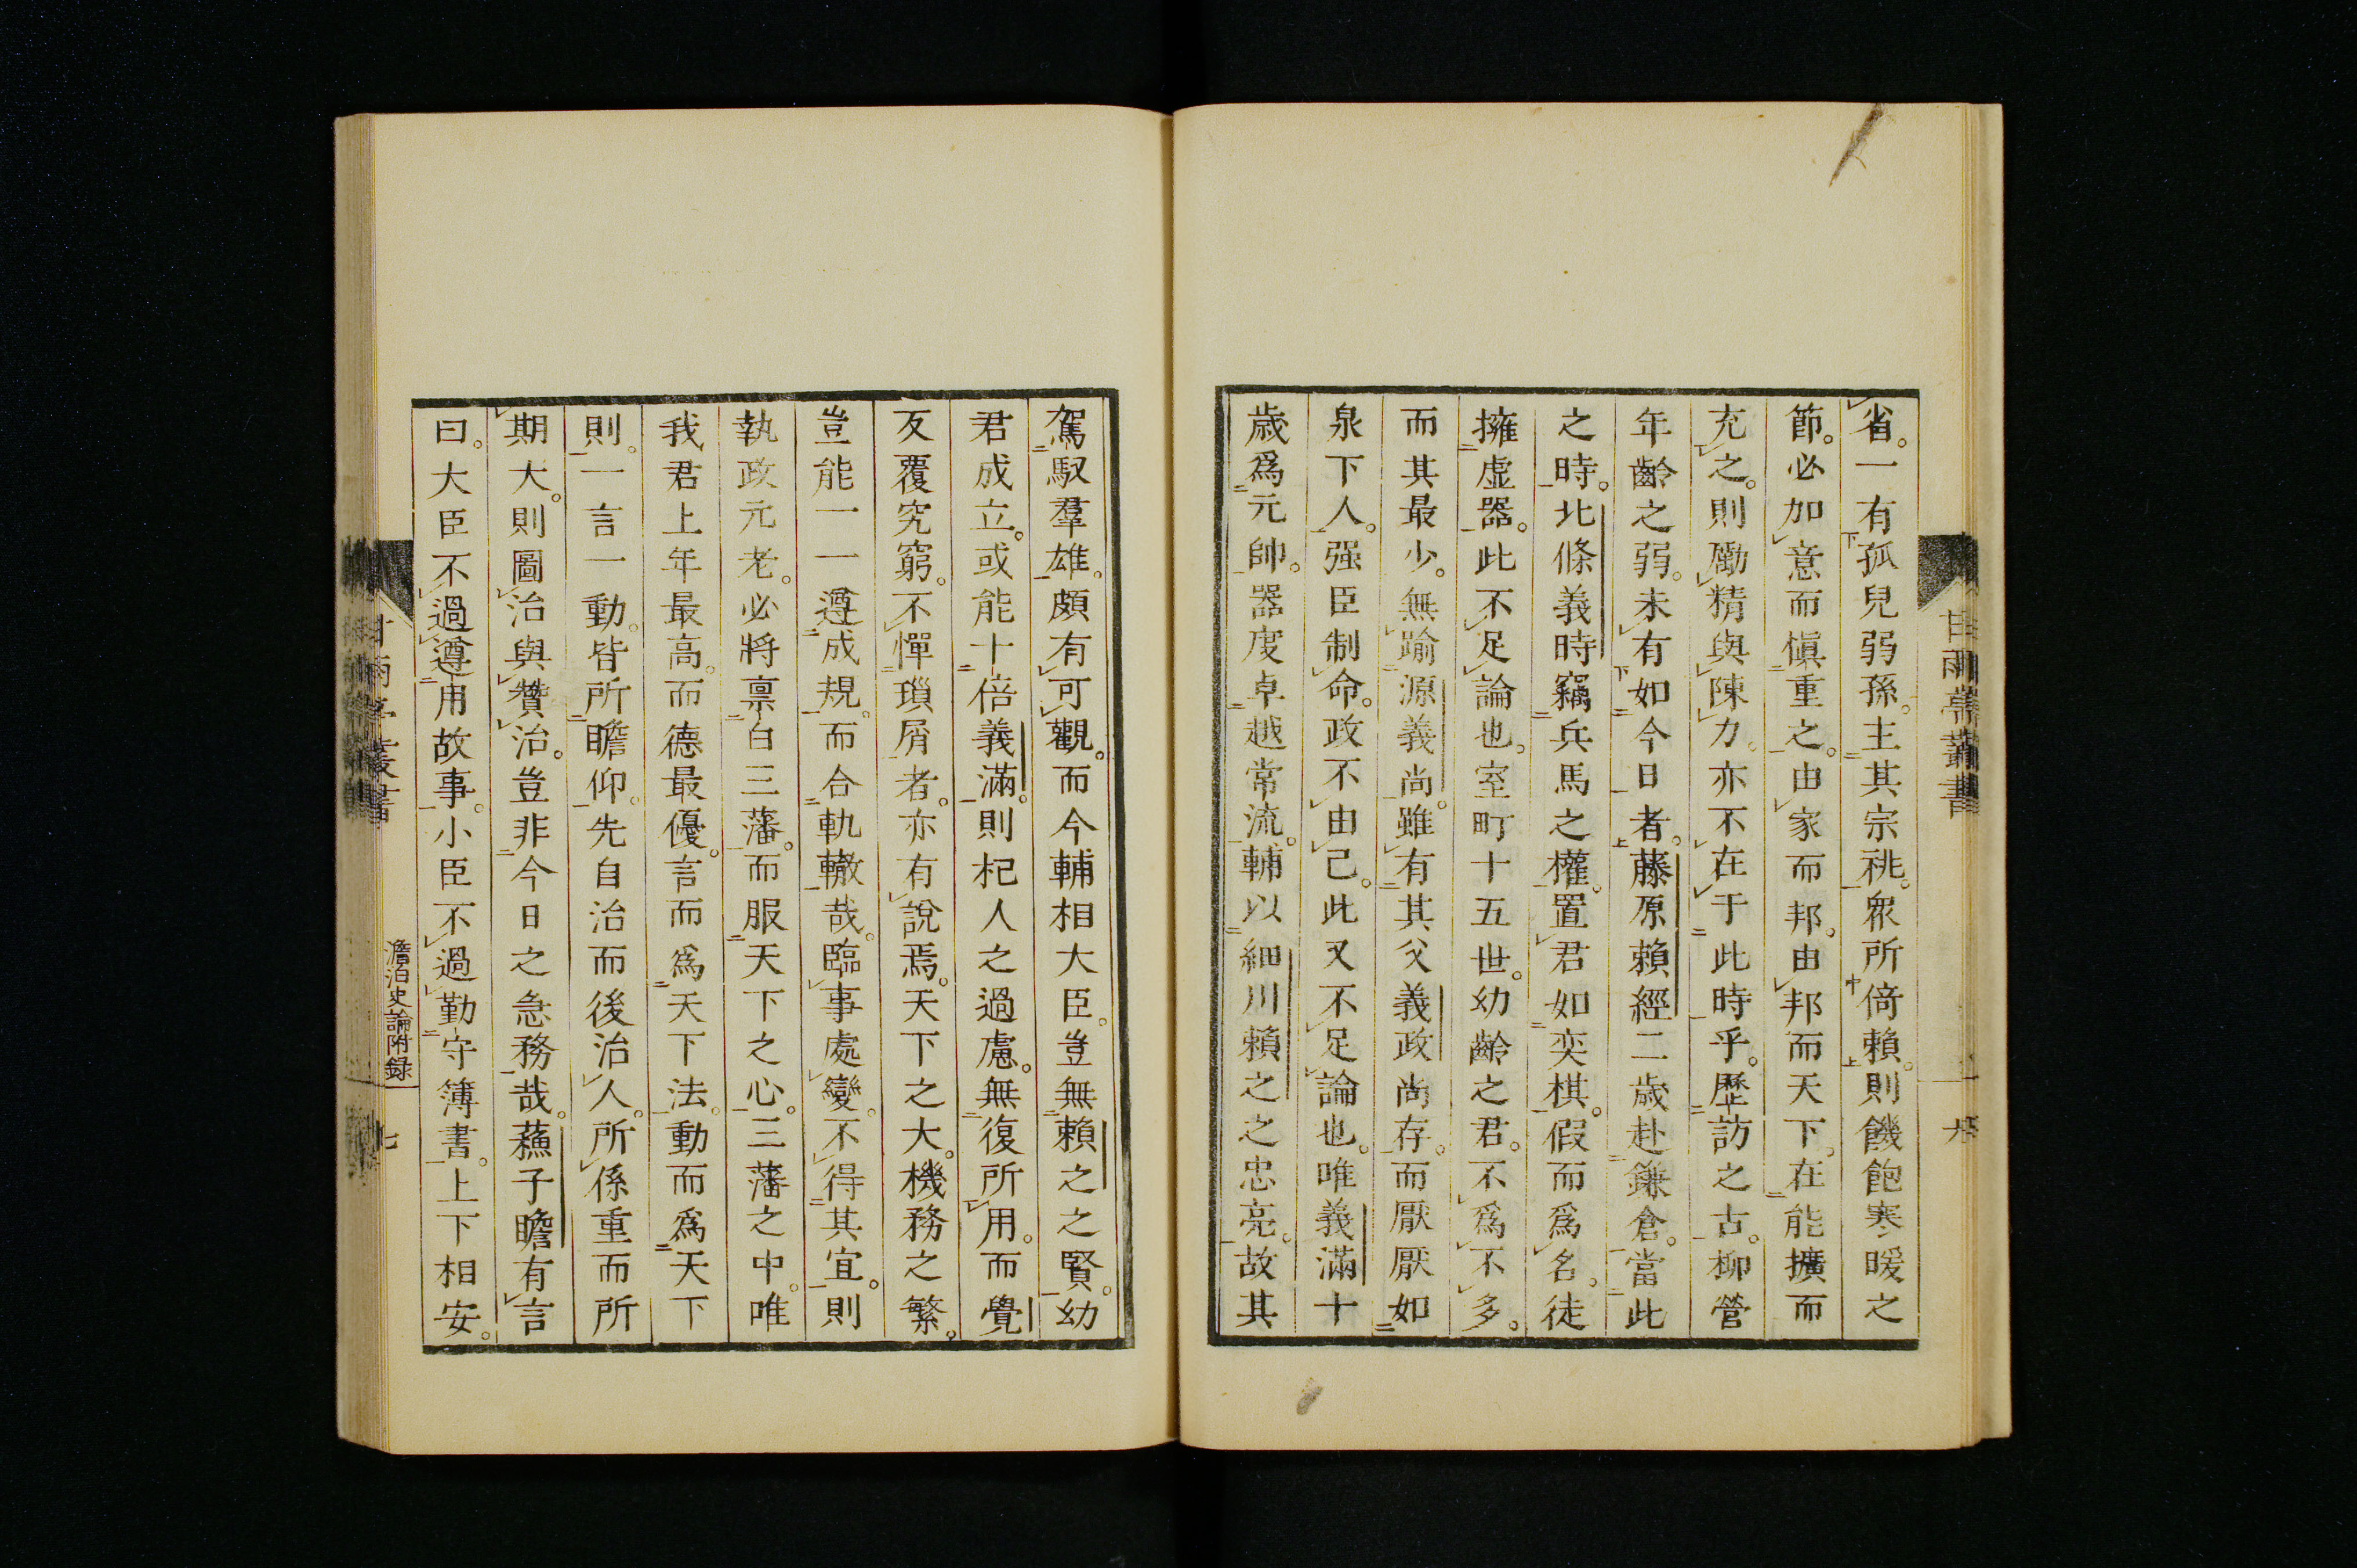 省。一有孤兒弱孫。主其宗祧。衆所倚賴。則饑飽寒暖之
節。必加意而愼重之。由家而邦。由邦而天下。在能擴而
充之。則勵精與陳力。亦不在于此時乎。歷訪之古。柳營
年齡之弱。未有如今日者。藤原賴經二歲赴鎌倉。當此
之時。北條義時竊兵馬之權。置君如奕棋。假而爲名。徒
擁虛器。此不足論也。室町十五世。幼齡之君。不爲不多。
而其最少。無踰源義尚。雖有其父義政尚存。而厭厭如
泉下人。强臣制命。政不由己。此又不足論也。唯義滿十
歲爲元帥。器度卓越常流。輔以細川賴之之忠亮。故其
駕馭羣雄。頗有可觀。而今輔相大臣。豈無賴之之賢。幼
君成立。或能十倍義滿。則杞人之過慮。無復所用。而覺
反覆究窮。不憚瑣屑者。亦有說焉。天下之大。機務之繁。
豈能一一遵成規。而合軌轍哉。臨事處變。不得其宜。則
執政元老。必將禀白三藩。而服天下之心。三藩之中。唯
我君上年最高。而德最優。言而爲天下法。動而爲天下
則。一言一動。皆所瞻仰。先自治而後治人。所係重而所
期大。則圖治與贊治。豈非今日之急務哉。蘓子瞻有言
曰。大臣不過遵用故事。小臣不過勤守簿書。上下相安。
甘雨亭叢書
澹泊史論附錄
七